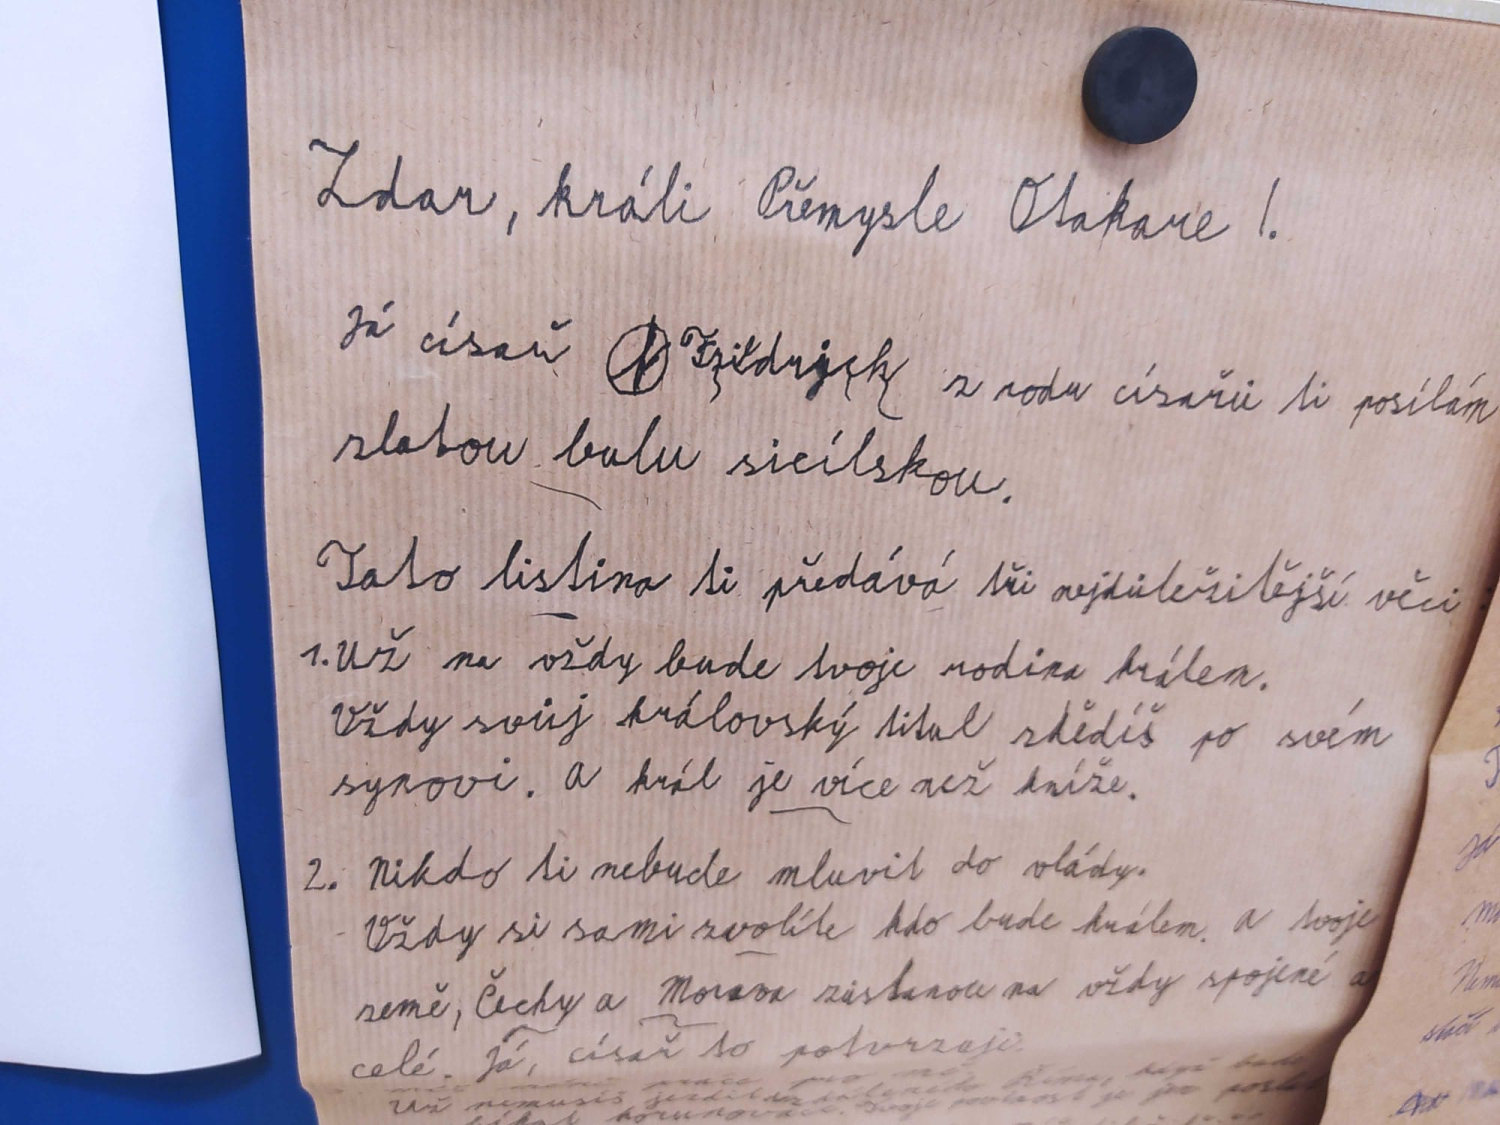 Zdar, králi Přemysle Otakare !.
Já císař Fridrich z rodu císařů ti posílám
zlatou bulu sicílskou.
Tato listina ti předává tři nejdůležitější věci :
1. Už na vždy bude tvoje rodina králem.
Vždy svůj královský titul zdědíš po svém
synovi. A král je více než kníže.
2. Nikdo ti nebude mluvit do vlády.
Vždy si sami zvolíte kdo bude králem. A tvoje
země, Čechy a Morava zůstanou na vždy spojené a
celé. Já, císař to potvrzuji.
Už nemusíš jezdit